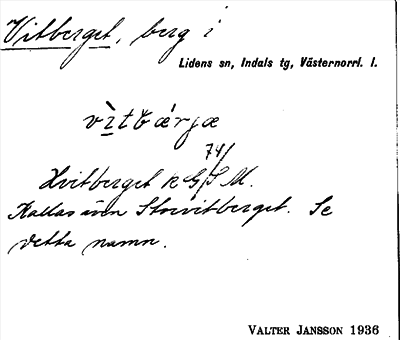 Vitberget, berg i
Lidens sn, Indals tg, Västernorrl. l.
vìtbǽrjæ
74/
Hvitberget k G/S M.
Kallas även Storvitberget. Se
detta namn.
VALTER JANSSON 1936